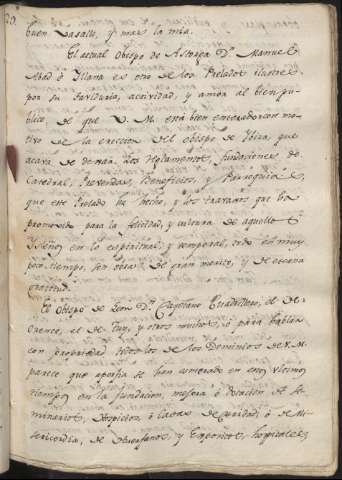 20.
buen Vasallo, y mas la mia.
El actual Obispo de Astorga D.n Manuel
Abad ô Yllana es otro de los Prelados ilustres
por su sabiduria, actividad, y amor al bien pu-
blico, de que V. M. está bien enterado con mo-
tivo de la ereccion del obispo de Ibiza, que
acava de dexar. Los Reglamentos, fundaciones de
Catedral, Prevendas, Beneficios, y Parroquias,
que este Prelado ha hecho, y los travajos que ha
promovido para la felicidad, y cultura de aquellos
Ysleños en lo espiritual, y temporal, todo en muy
poco tiempo, son obras de gran merito, y de eterna
gratitud.
El Obispo de Leon D.n Cayetano Quadrillero, el de
Orense, el de Tuy, y otros muchos, ó para hablar
con propriedad todos los de los Dominios de V. M.
parece que à porfia se han esmerado en estos ultimos
tiempos en la fundacion, mejora ó dotacion de Se-
minarios, Hospicios, ó Casas de Caridad, ó de Mi-
sericordia, de Huerfanos, y Expositos, hospitales